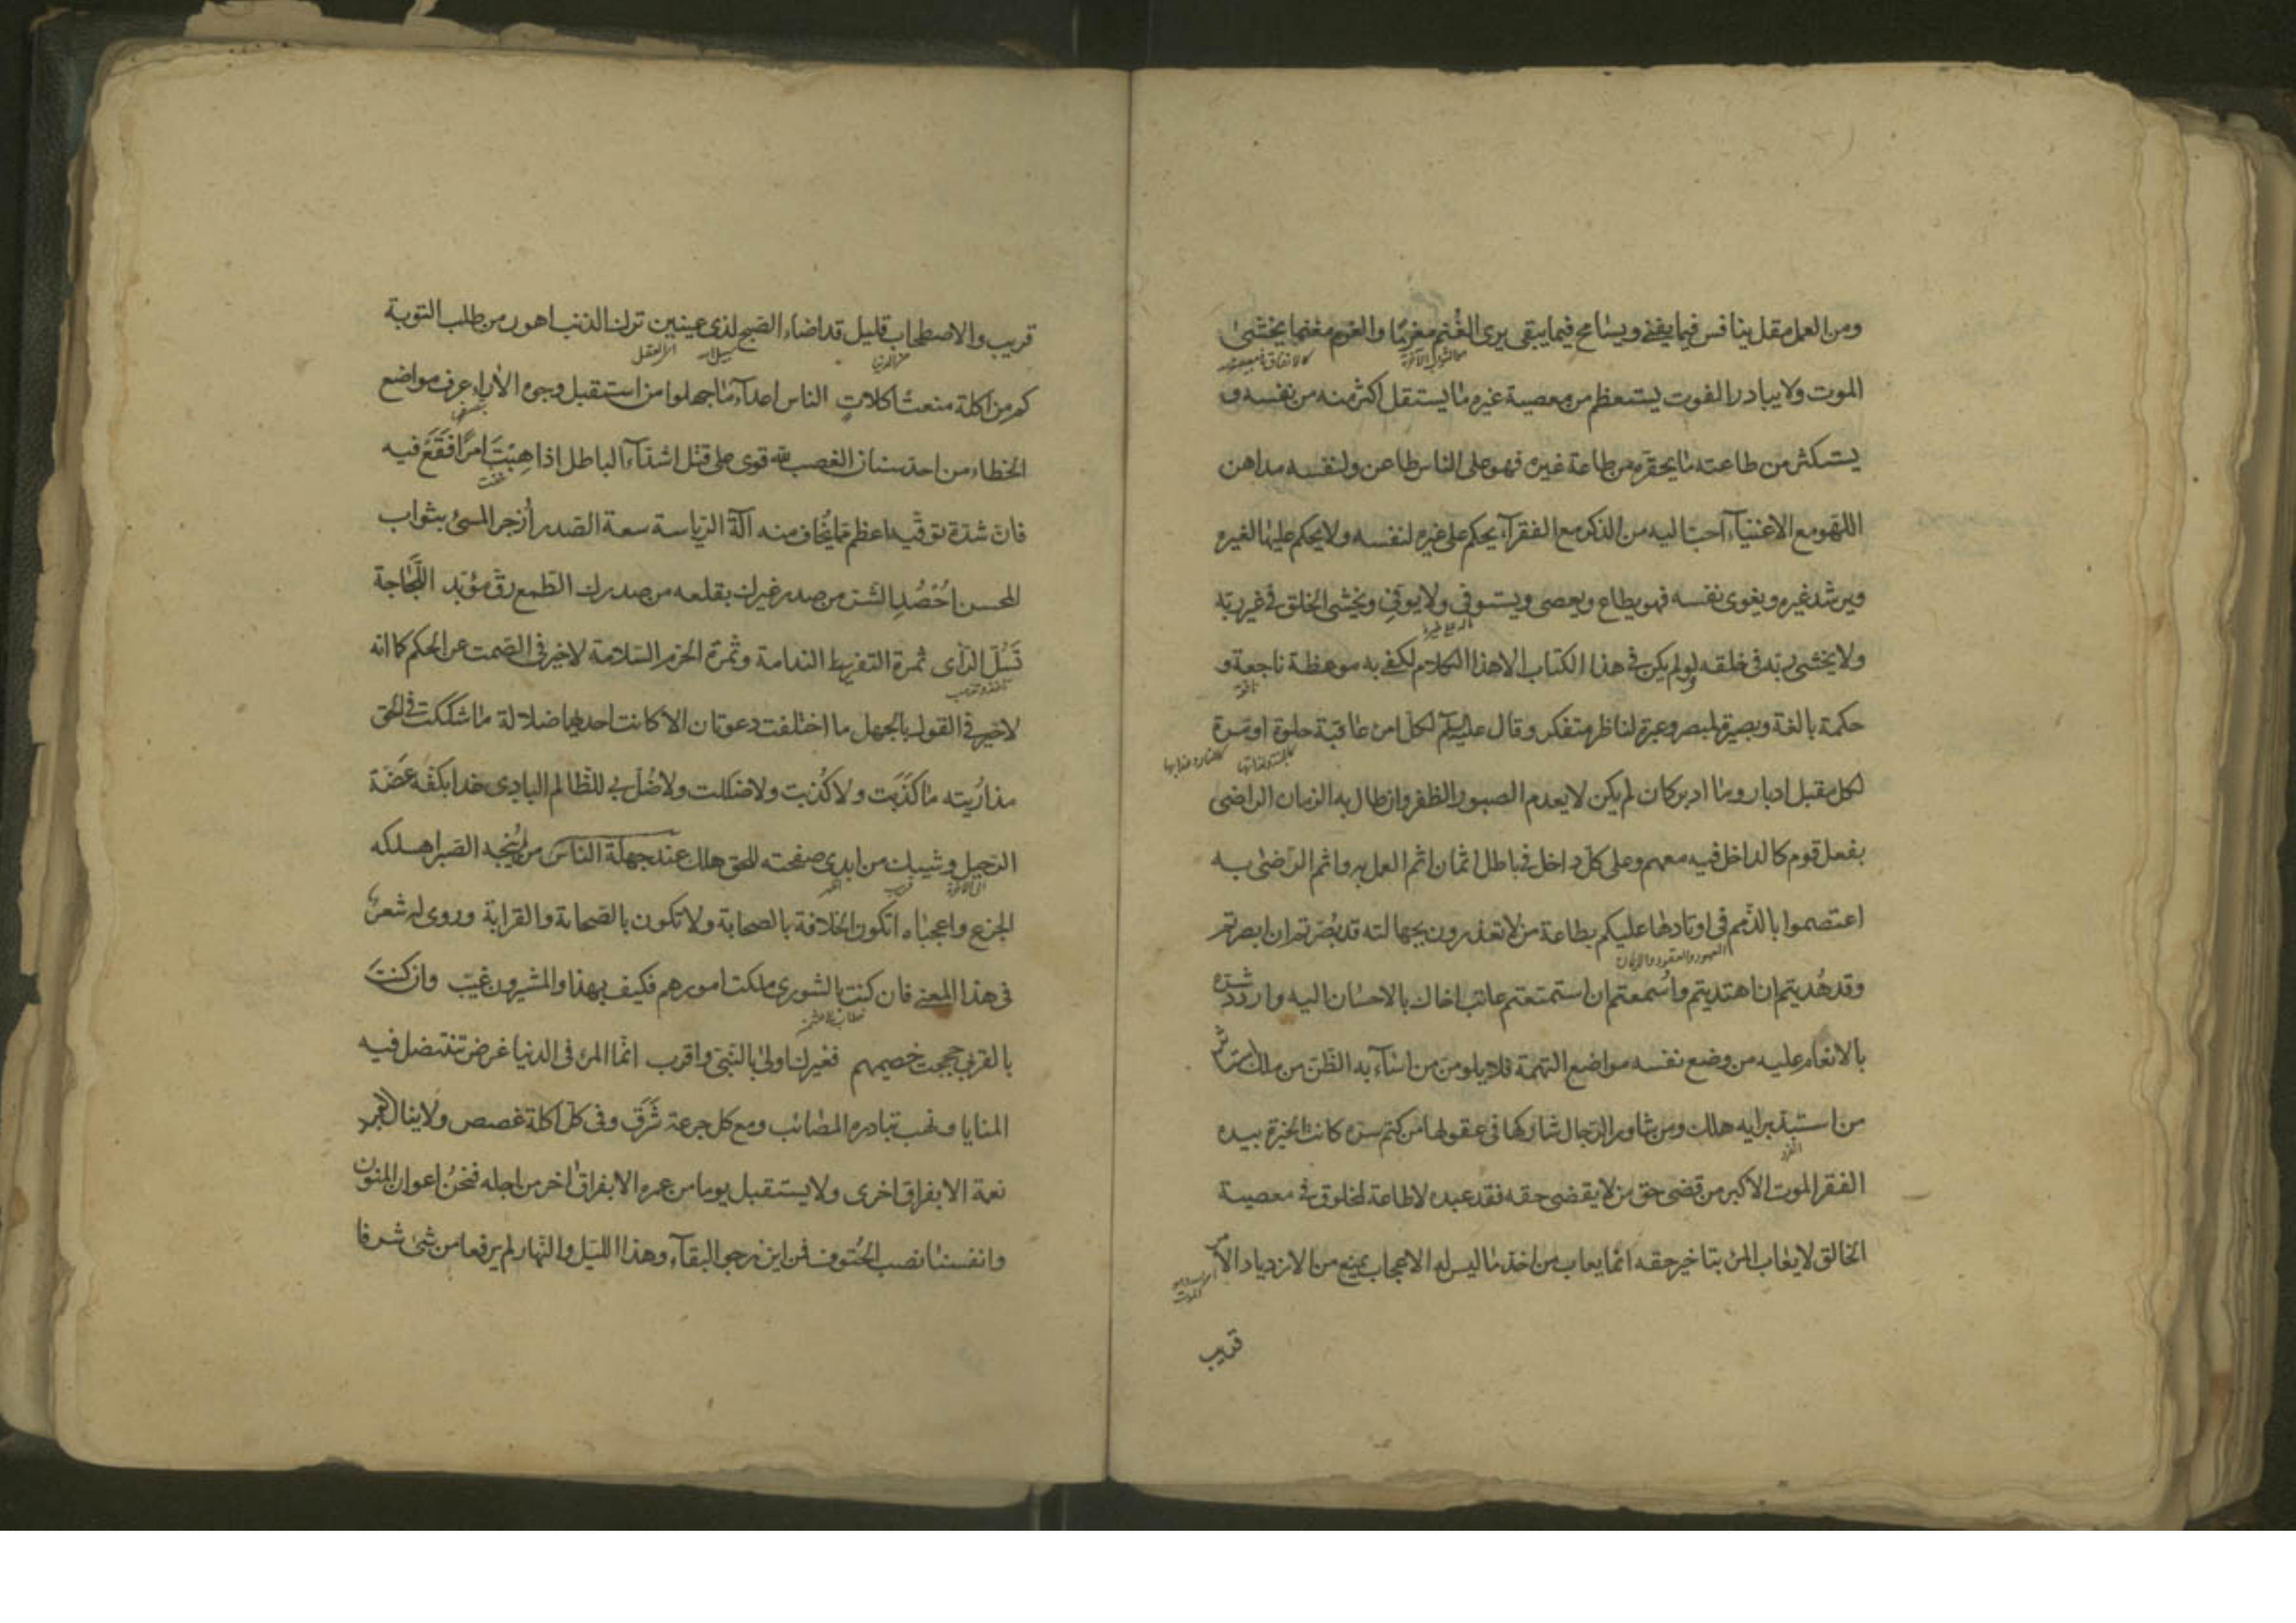 ومن العمل مقل ينافس فيما يفنى ويسامح فيما يبقى يرى الغُنم مغرمًا والغرم مغنما يخشى
الموت ولا يبادر الفوت يستعظم من معصية غيره ما يستقل اكثر منه من نفسه و
يستكثر من طاعته ما يحقره من طاعة غيره فهو على الناس طاعن ولنفسه مداهن
اللهو مع الاغنياء احب اليه من الذكر مع الفقرآء يحكم على غيره لنفسه ولا يحكم عليها لغيره
ويرشد غيره ويغوى نفسه فهو يطاع ويعصى ويستوفى ولا يوفى ويخشى الخلق فى غير ربه
ولا يخشى ربه فى خلقه ولو لم يكن فى هذا الكتاب الا هذا الكلام لكفى به موعظة ناجعة و
حكمة بالغة وبصيرة لمبصر وعبرة لناظر متفكر وقال عليه السلم لكل امرء عاقبة حلوة او مرة
لكل مقبل ادبار وما ادبر كان لم يكن لا يعدم الصبور الظفر وان طال به الزمان الراضى
بفعل قوم كالداخل فيه معهم وعلى كل داخل فى باطل اثمان اثم العمل به واثم الرّضى به
اعتصموا بالذّمم فى اوتادها عليكم بطاعة من لا تعذرون بجهالته قد بُصّرتم ان ابصرتم
العهود والعقود والايمان
وقد هُديتم ان اهتديتم واُسمعتم ان استمتعتم عاتب اخاك بالاحسان اليه واردد شرّه
بالانعام عليه من وضع نفسه مواضع التهمة فلا يلومن من اسآء به الظن من ملك استاثر
من استبد برايه هلك ومن شاور الرجال شاركها فى عقولها من كتم سره كانت الخيرة بيده
الفقر الموت الاكبر من قضى حق من لا يقضى حقه فقد عبده لا طاعة لمخلوق فى معصية
الخالق لا يعاب المرء بتاخير حقه انما يعاب من اخذ ما ليس له الاعجاب يمنع من الازدياد الامر
قريب
قريب والاصطحاب قليل قد اضاء الصبح لذى عينين ترك الذنب اهون من طلب التوبة
كم من اكلة منعت اكلات الناس اعدآء ما جهلوا من استقبل وجوه الاراء عرف مواضع
الخطاء من احد سنان الغضب لله قوى على قتل اشدآء الباطل اذا هِبْتَ امرًا فَقَعْ فيه
فان شدة توقّيه اعظم مما يخاف منه آلة الرياسة سعة الصدر اُزجر المسئ بثواب
المحسن اُحْصُدِ الشرّ من صدر غيرك بقلعه من صدرك الطمع رق مؤبّد اللّجاجة
تَسُلّ الرّأى ثمرة التفريط الندامة وثمرة الحزم السّلامة لا خير فى الصّمت عن الحكم كما انه
لا خير فى القول بالجهل ما اختلفت دعوتان الا كانت احديهما ضلالة ما شككت فى الحق
مذ اُريته ما كذَبت ولا كُذبت ولا ضللت ولا ضُل بى للظالم البادى غدا بكفّه عَضّة
الرّحيل وشيك من ابدى صفحته للحق هلك عند جهلة الناس من لم يُنجه الصّبر اهلكه
الجزع واعجباه اتكون الخلافة بالصحابة ولا تكون بالصحابة والقرابة وروى له شعر
فى هذا المعنى فان كنت بالشورى ملكت امورهم فكيف بهذا والمشيرون غيّب وان كنتَ
بالقربى حججت خصيمهم فغيرك اولى بالنّبىّ واقرب انّما المرء فى الدنيا غرض تنتضل فيه
المنايا ونهب تبادره المصائب ومع كل جرعة شَرَق وفى كل اكلة غصص ولا ينال العبد
نعمة الا بفراق اخرى ولا يستقبل يوما من عمره الا بفراق اخر من اجله فنحنُ اعوان المنون
وانفسنا نصب الحُتوف فمن اين نرجو البقآء وهذا الليل والنهار لم يرفعا من شئ شرفا